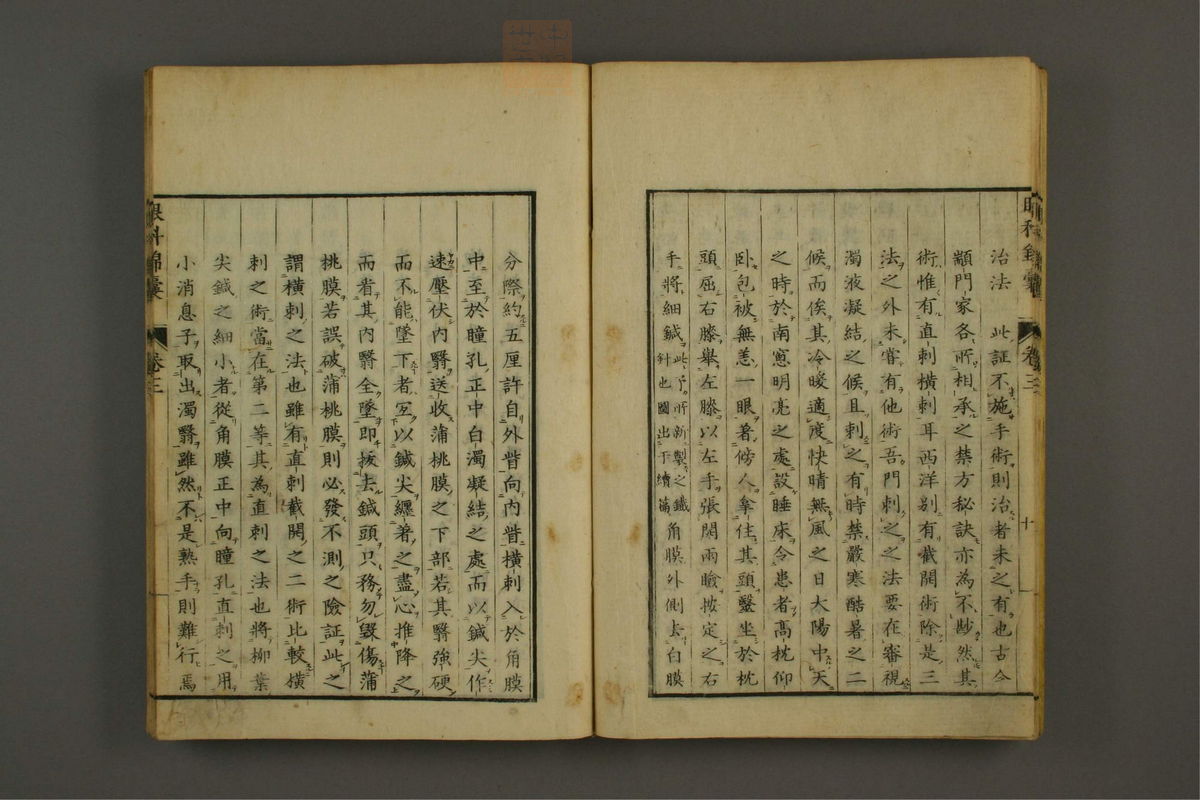 眼科錦囊 卷三 十
治法 此証不施手術則治者未之有也古今
顓門家各所相承之禁方秘訣亦為不尠然其
術惟有直刺橫刺耳西洋別有截開術除是三
法之外未嘗有他術吾門刺之之法要在審視
濁液凝結之候且刺之有時禁嚴寒酷暑之二
候而俟其冷暖適度快晴無風之日太陽中天
之時於南窻明亮之處設睡床令患者高枕仰
卧包被無恙一眼著傍人拿住其頭毉坐於枕
頭屈右膝舉左膝以左手張開兩瞼按定之右
手將細鍼此予所新製之鐵針也圖出于續篇角膜外側去白膜
分際約五厘許自外眥向內眥橫刺入於角膜
中至於瞳孔正中白濁凝結之處而以鍼尖作
速壓伏內翳送收蒲桃膜之下部若其翳強硬
而不能墜下者宜以鍼尖纏著之盡心推降之
而省其內翳全墜即拔去鍼頭只務勿毀傷蒲
桃膜若誤破蒲桃膜則必發不測之險証此之
謂橫刺之法也雖有直刺截開之二術比較橫
刺之術當在第二等其為直刺之法也將柳葉
尖鍼之細小者從角膜正中向瞳孔直刺之用
小消息子取出濁翳雖然不是熟手則難行焉
眼科錦囊 卷三